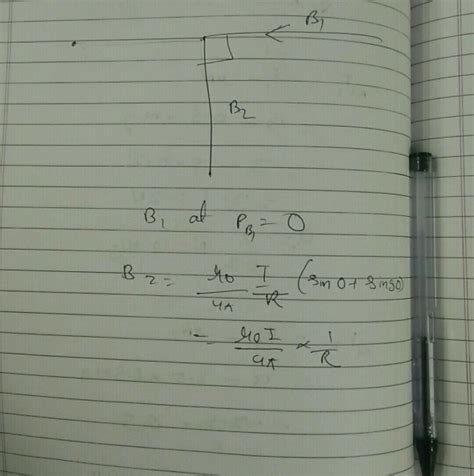 B₁
B₂
B₁ at P_B₁ = 0
B₂ = μ₀/4π I/R (sin 0 + sin 90)
= μ₀I/4π × 1/R